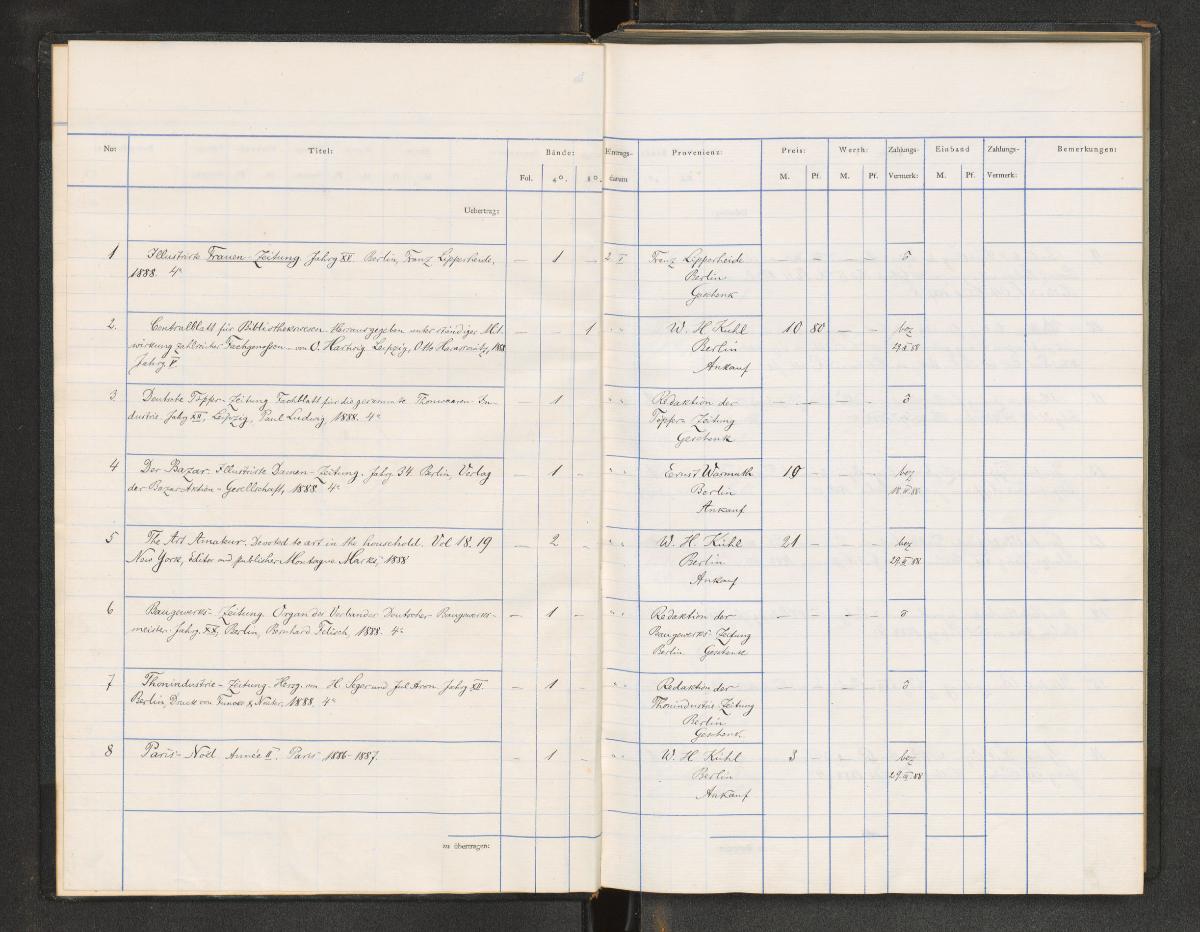 No: Titel: Bände: Eintrags- Provenienz: Preis: Werth: Zahlungs- Einband Zahlungs- Bemerkungen:
Fol. 4°. 8°. datum M. Pf. M. Pf. Vermerk: M. Pf. Vermerk:
Uebertrag:
1 Illustrirte Frauen-Zeitung Jahrg XV. Berlin, Franz Lipperheide, — 1 — 2 I Franz Lipperheide — — — — õ
1888. 4° Berlin
Geschenk
2. Centralblatt für Bibliothekswesen. Herausgegeben unter ständiger Mit — — 1 " " W. H Kühl 10 80 — — bez
wirkung zahlreicher Fachgenossen von O. Hartwig Leipzig, Otto Harassowitz, 1888 Berlin
Jahrg V. Ankauf
3 Deutsche Töpfer-Zeitung Fachblatt für die gesammte Thonwaaren-In- — 1 " " Redaktion der — — — — õ
dustrie. Jahrg XII, Leipzig, Paul Ludwig, 1888. 4° Töpfer-Zeitung
Geschenk
4 Der Bazar. Illustrirte Damen-Zeitung. Jahrg. 34. Berlin, Verlag — 1 — " " Ernst Wasmuth 10 — — — bez
der Bazar-Aktien-Gesellschaft, 1888. 4° Berlin
Ankauf
5 The Art Amateur. Devoted to art in the household. Vol 18. 19 — 2 — " " W. H. Kühl 21 — — — bez
New York, Editor and publisher Montague Marks, 1888 Berlin
Ankauf
6 Baugewerks-Zeitung. Organ des Verbandes Deutscher Baugewerks- — 1 — " " Redaktion der — — — — õ
meister. Jahrg. XX, Berlin, Bernhard Felisch, 1888. 4° Baugewerks-Zeitung
Berlin Geschenk
7 Thonindustrie-Zeitung. Herzg. von H. Seger und Jul Aron. Jahrg XII. — 1 — " " Redaktion der — — — — õ
Berlin, Druck von 1888. 4° Thonindustrie Zeitung
Berlin
Geschenk.
8 Paris-Noël Année II. Paris 1886-1887. — 1 — " " W. H Kühl 3 — — — bez
Berlin
Ankauf
zu übertragen: